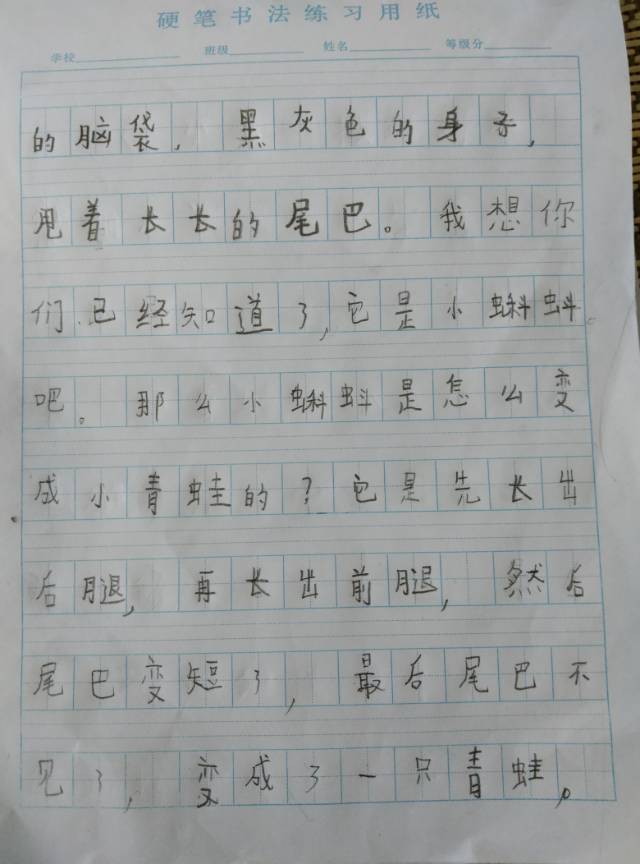 硬笔书法练习用纸
学校 班级 姓名 等级分
的脑袋，黑灰色的身子，
甩着长长的尾巴。我想你
们已经知道了，它是小蝌蚪
吧。那么小蝌蚪是怎么变
成小青蛙的？它是先长出
后腿，再长出前腿，然后
尾巴变短了，最后尾巴不
见了，变成了一只青蛙。